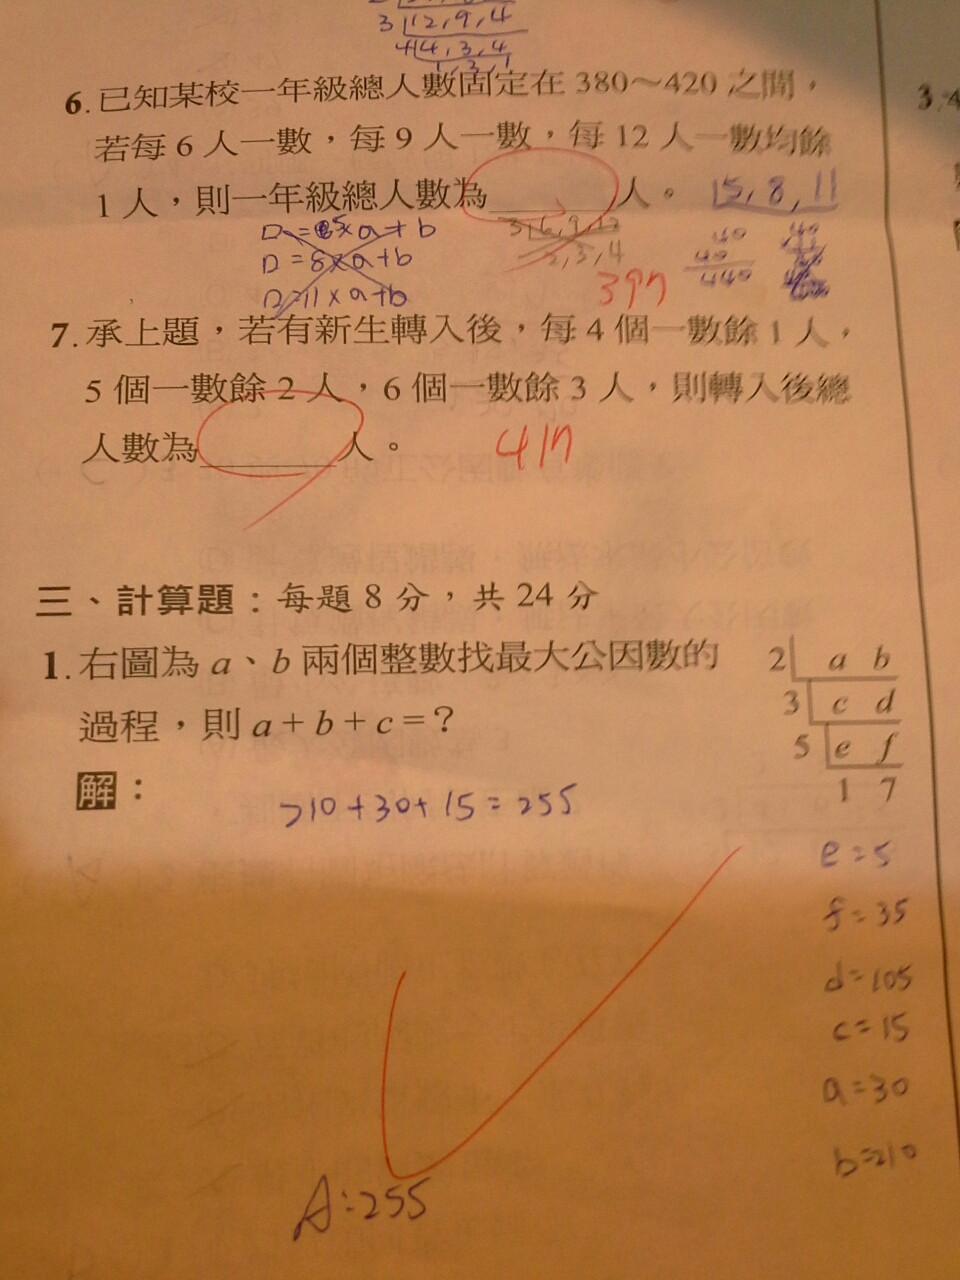 3 12, 9, 4
4 4, 3, 4
1, 3, 1
6. 已知某校一年級總人數固定在 380～420 之間，
若每 6 人一數，每 9 人一數，每 12 人一數均餘
1 人，則一年級總人數為 人。
5, 8, 11
3 6, 9, 12
2, 3, 4
n = 8×a+b
n = 11×a+b
440
397
7. 承上題，若有新生轉入後，每 4 個一數餘 1 人，
5 個一數餘 2 人，6 個一數餘 3 人，則轉入後總
人數為 人。
417
三、計算題：每題 8 分，共 24 分
1. 右圖為 a、b 兩個整數找最大公因數的
過程，則 a+b+c=？
2 a b
3 c d
5 e f
1 7
解：
210+30+15=255
e=5
f=35
d=105
c=15
a=30
b=210
A:255
3.